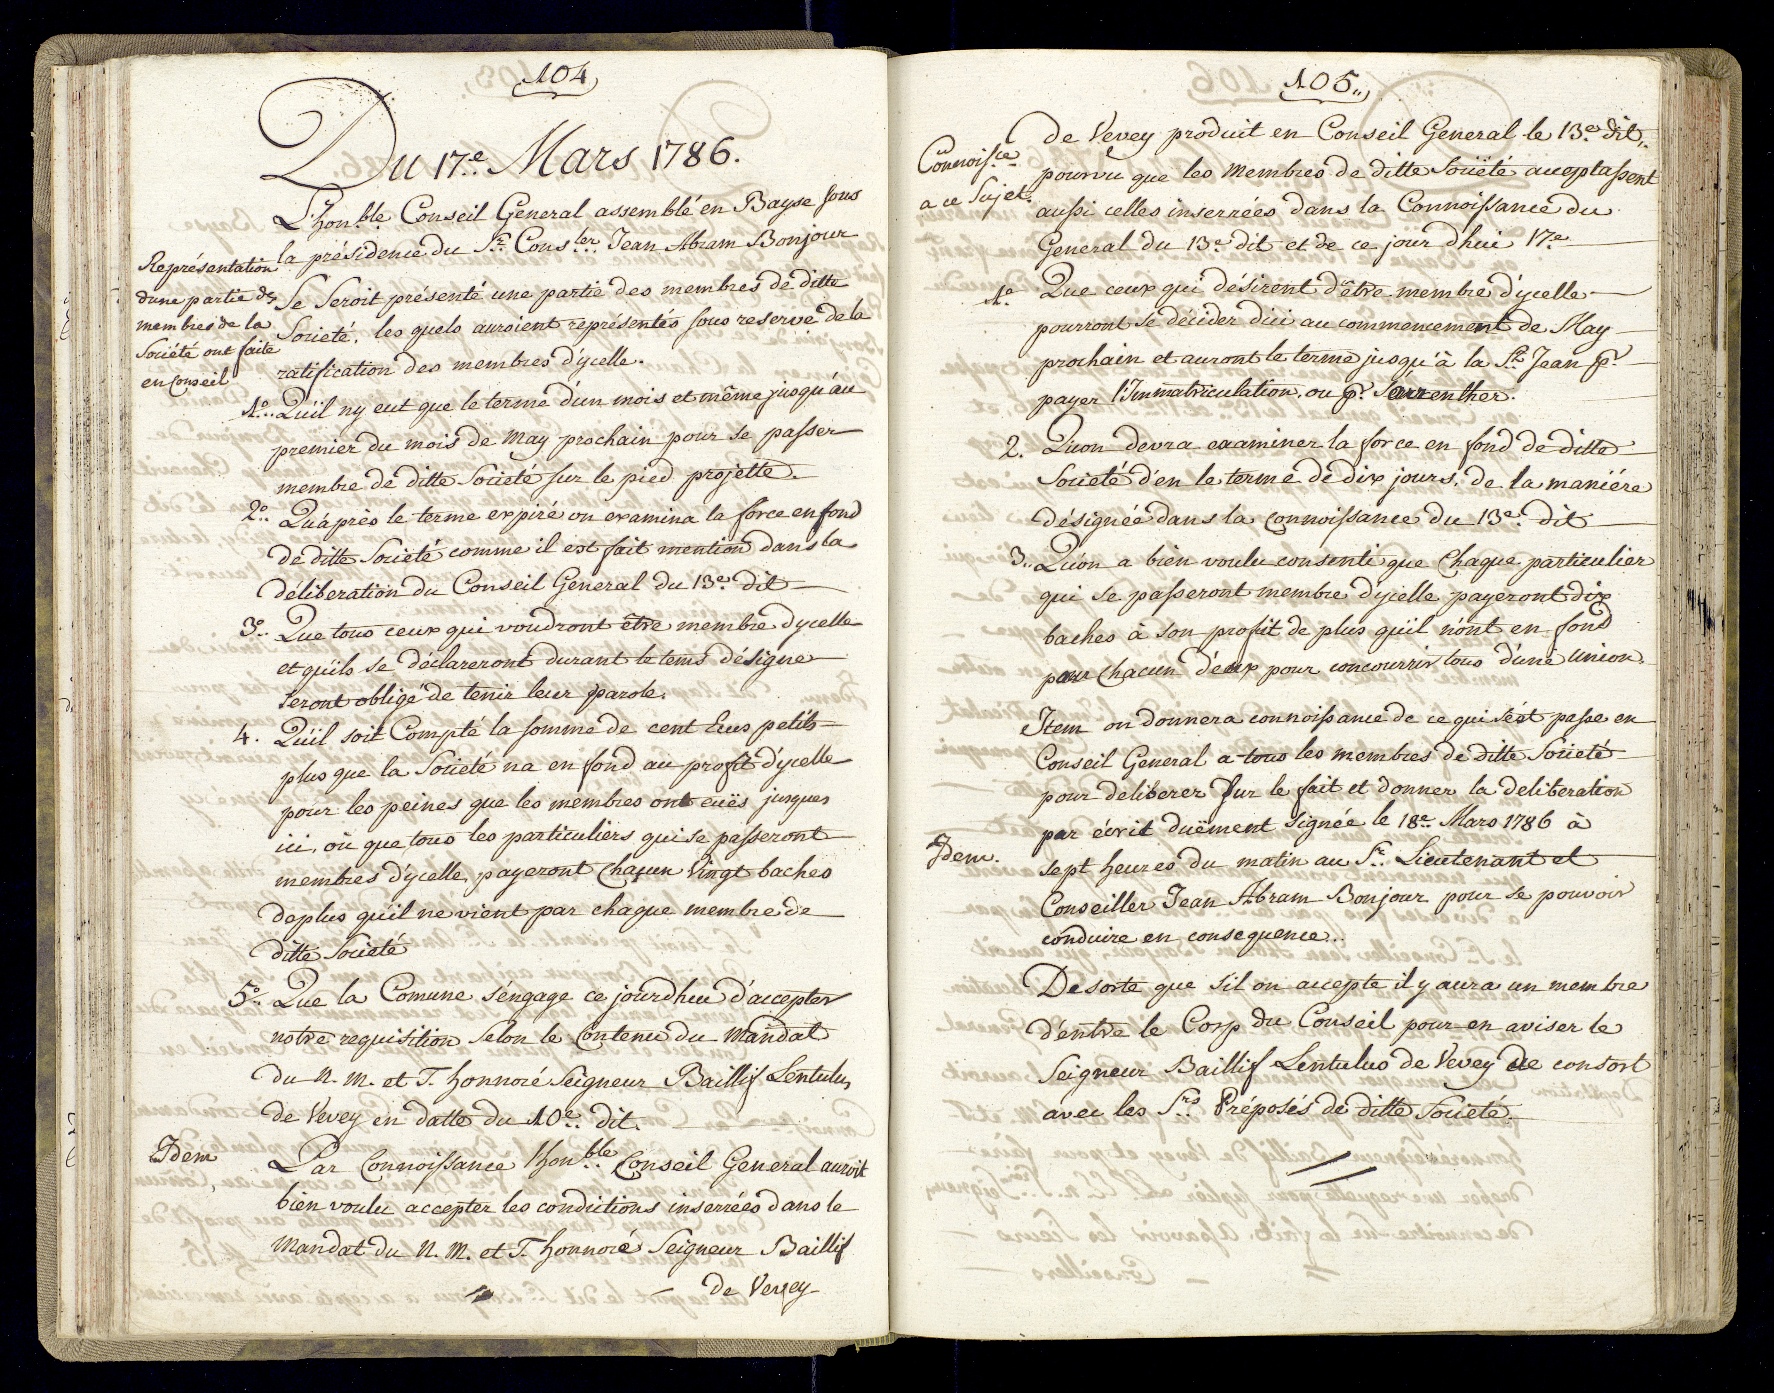 104
Du 17.e Mars 1786.
L'hon.ble Conseil General assemblé en Bayse sous
la présidence du Sr. Cons.ler Jean Abram Bonjour
Représentation
dune partie des
membres de la
Société ont faite
en Conseil
Se Seroit présenté une partie des membres de ditte
Societé, les quels auroient représentés sous reserve de la
ratification des membres d'ycelle.
1.o Qu'il ny eut que le terme d'un mois et même jusqu'au
premier du mois de May prochain pour se passer
membre de ditte Societé sur le pied projette.
2.o Qu'après le terme expiré on examina la force en fond
de ditte Societé comme il est fait mention dans la
déliberation du Conseil General du 13.e dit
3.o Que tous ceux qui voudront être membre d'ycelle
et qu'ils se déclareront durant le tems désigne
seront obligé de tenir leur parole.
4. Qu'il soit Compté la somme de cent Ecus petits
plus que la Societé na en fond au profit d'ycelle
pour les peines que les membres ont euës jusques
ici, où que tous les particuliers qui se passeront
membres d'ycelle, payeront Chacun Vingt baches
deplus qu'il ne vient par chaque membre de
ditte Societé
5.o Que la Comune s'engage ce jourdhui d'accepter
notre requisition selon le Contenu du Mandat
du N. M. et T. honnoré Seigneur Baillif Lentulus
de Vevey en datte du 10.e dit.
Idem
Par Connoissance l'hon.ble Conseil General auroit
bien voulu accepter les conditions inserrées dans le
Mandat du N. M. et T. honnoré Seigneur Baillif
de Vevey
105
de Vevey produit en Conseil General le 13.e dit,
Connoiss.ce
a ce Sujet.
pourvu que les Membres de ditte Société acceptassent
aussi celles inserrées dans la Connoissance du
General du 13.e dit et de ce jour d'hui 17.e
1.o Que ceux qui désirent d'être membre d'ycelle
pourront se décider d'ici au commencement de May
prochain et auront le terme jusqu'à la St. Jean pr.
payer l'Immatriculation, ou pr.
2. Qu'on devra examiner la force en fond de ditte
Societé d'en le terme de dix jours, de la maniére
désignée dans la Connoissance du 13.e dit
3. Qu'on a bien voulu consenti que Chaque particulier
qui se passeront membre d'ycelle payeront dix
baches à son profit de plus qu'il n'ont en fond
par Chacun d'eux pour concourrir tous d'une Union.
Item on donnera connoissance de ce qui s'ést passe en
Conseil General a tous les membres de ditte Societé
pour deliberer sur le fait et donner la deliberation
par écrit duëment signée le 18.e Mars 1786 à
Idem.
sept heures du matin au Sr. Lieutenant et
Conseiller Jean Abram Bonjour pour se pouvoir
conduire en consequence.
De sorte que s'il on accepte il y aura un membre
d'entre le Corp du Conseil pour en aviser le
Seigneur Baillif Lentulus de Vevey de consort
avec les Srs. Préposés de ditte Societé.